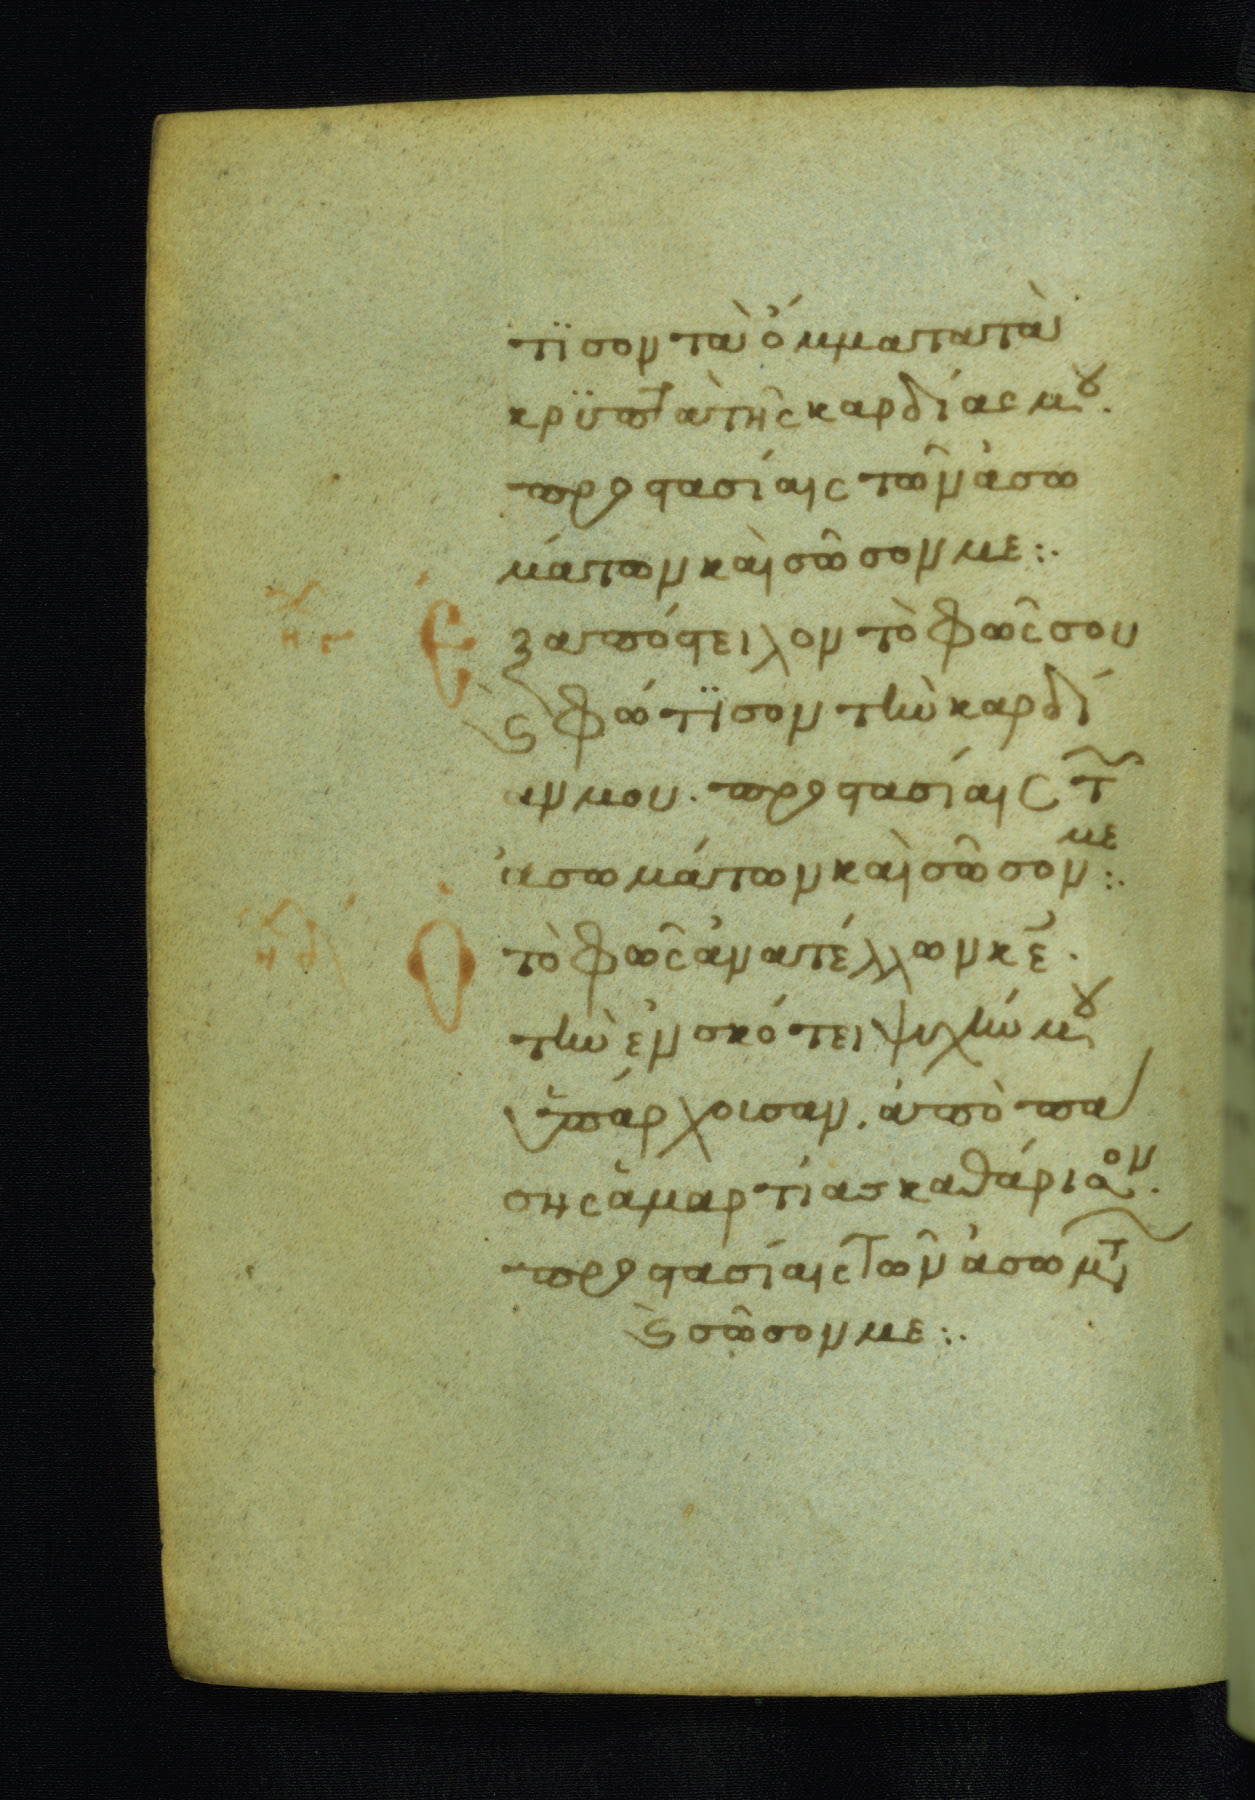 τϊσον τὰ ὄμματα τὰ
κρϋπτὰ τῆς καρδίας μου.
προστασίαις τῶν ἀσω
μάτων καὶ σῶσον με:.
Ἐξαπόστειλον τὸ φῶς σου
ϗ φώτϊσον τὴν καρδί
αν μου. προστασίαις τ῀
ἀσωμάτων καὶ σῶσον με:.
Ὁ τὸ φῶς ἀνατέλλων κε̅.
τὴν ἐν σκότει ψυχήν μου
ὑπάρχοισαν. ἀπὸ πά
σης ἁμαρτίας καθάρισον.
προστασίαις τῶν ἀσωμτ
ϗ σῶσον με:.